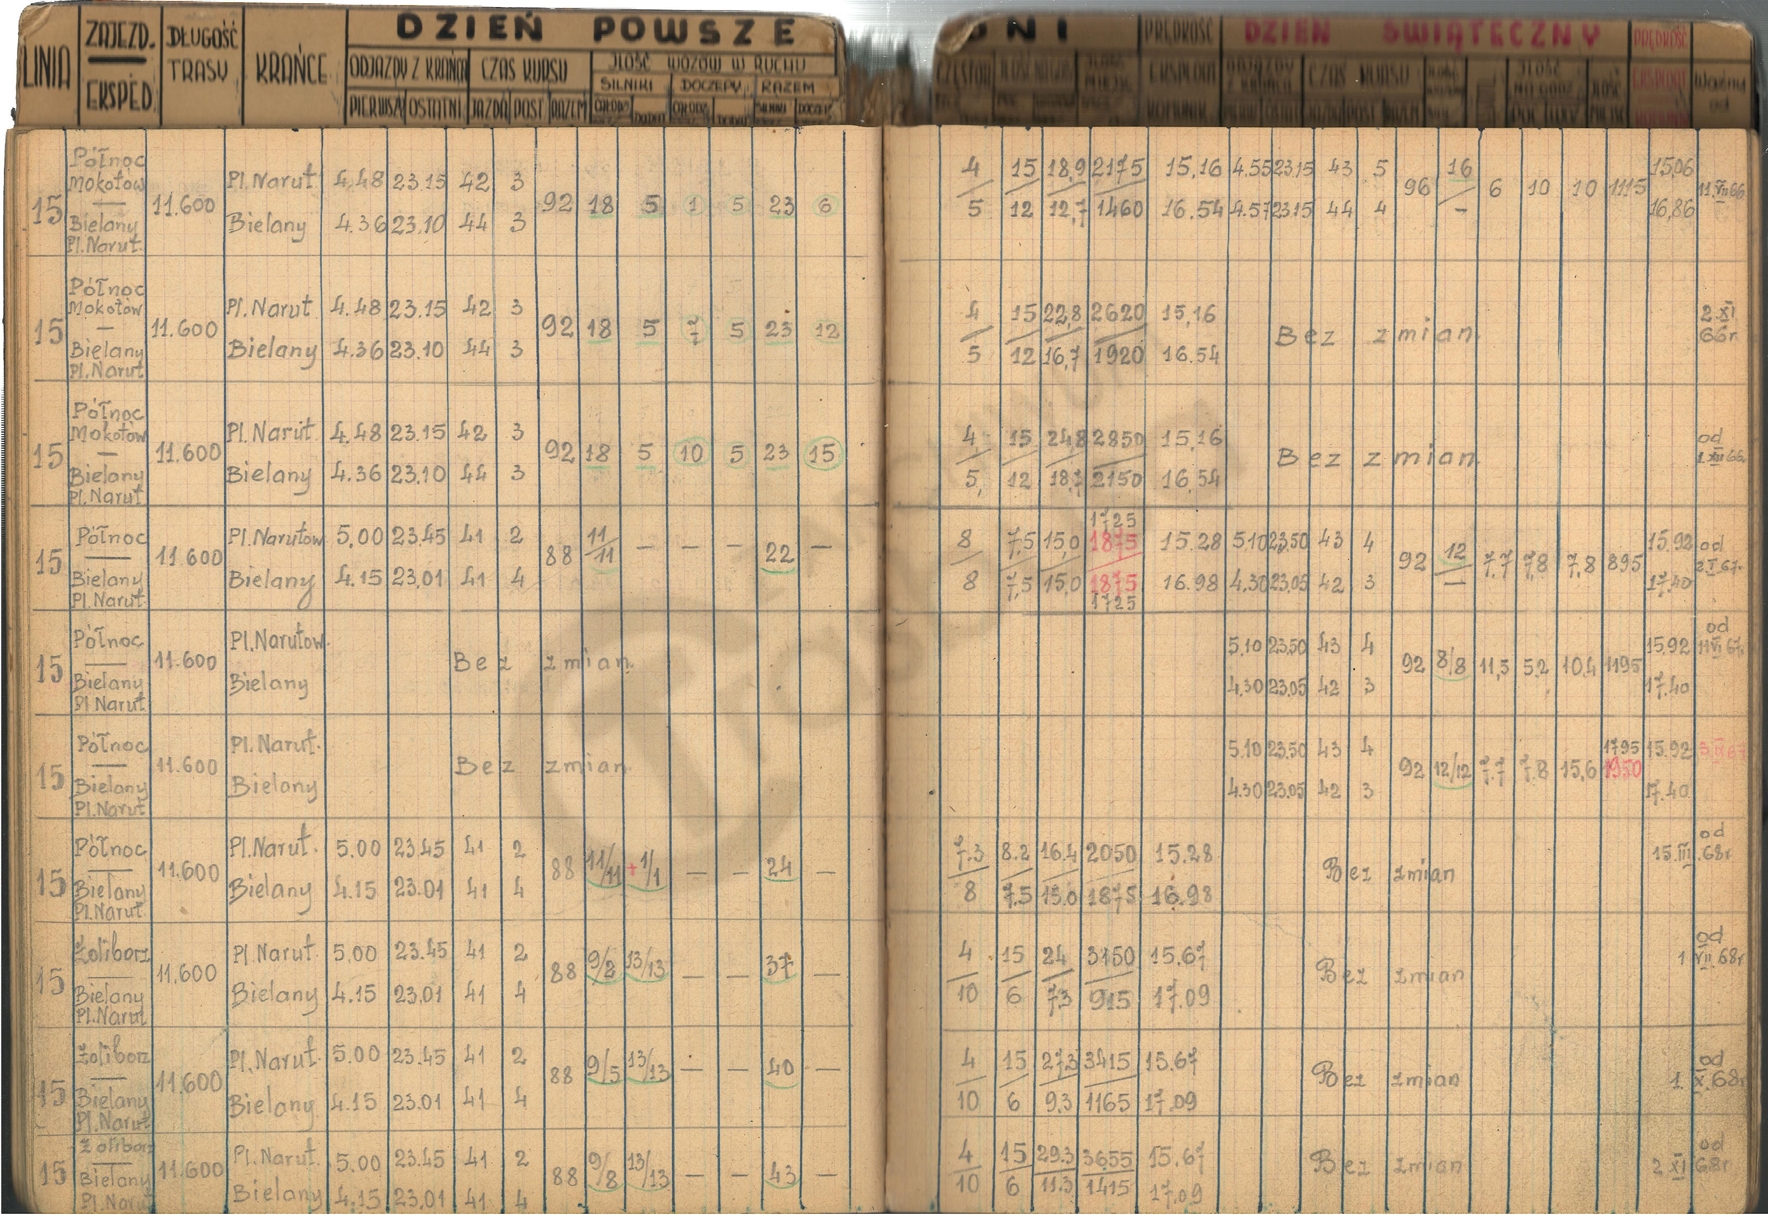 LINIA
ZAJEZD.
EKSPED.
DŁUGOŚĆ
TRASY
KRAŃCE
DZIEŃ POWSZE DNI
ODJAZDY Z KRAŃCA
PIERWSZY OSTATNI
CZAS KURSU
JAZDA POST RAZEM
ILOŚĆ WOZÓW W RUCHU
SILNIKI DOCZEPY RAZEM
PRĘDKOŚĆ
EKSPLOAT
DZIEŃ ŚWIĄTECZNY
CZAS KURSU
PRĘDKOŚĆ
EKSPLOAT
Ważny
od
15 Północ Mokotów — Bielany Pl.Narut. 11.600
Pl.Narut 4.48 23.15 42 3
92 18 5 1 5 23 6
Bielany 4.36 23.10 44 3
4 15 18,9 2175 15,16 4.55 23.15 43 5
96 16/– 6 10 10 1115
5 12 12,7 1460 16.54 4.57 23.15 44 4
15.06
16,86
11 VII 66
15 Północ Mokotów — Bielany Pl.Narut 11.600
Pl.Narut 4.48 23.15 42 3
92 18 5 7 5 23 12
Bielany 4.36 23.10 44 3
4 15 22,8 2620 15,16
5 12 16,7 1920 16.54
Bez zmian
2.XI
66r
15 Północ Mokotów — Bielany Pl.Narut 11.600
Pl.Narut 4.48 23.15 42 3
92 18 5 10 5 23 15
Bielany 4.36 23.10 44 3
4 15 24,8 2850 15,16
5, 12 18,7 2150 16,54
Bez zmian
od
1 XII 66
15 Północ — Bielany Pl.Narut. 11.600
Pl.Narutow 5,00 23.45 41 2
88 11/11 — — — 22 —
Bielany 4.15 23,01 41 4
1725
8 7,5 15,0 1875 15.28 5.10 23,50 43 4
92 12/— 7,7 7,8 7,8 895
8 7,5 15,0 1875 16.98 4.30 23.05 42 3
1725
15.92
17.40
od
2 I 67.
15 Północ — Bielany Pl Narut 11.600
Pl.Narutow.
Bielany
Bez zmian
5.10 23,50 43 4
92 8/8 11,5 5,2 10,4 1195
4.30 23.05 42 3
15.92
17.40
od
11 VI 67.
15 Północ — Bielany Pl.Narut 11.600
Pl. Narut.
Bielany
Bez zmian
5.10 23.50 43 4
92 12/12 7.7 7.8 15,6 1795 1950
4.30 23.05 42 3
15.92
17.40
15 Północ — Bielany Pl.Narut. 11.600
Pl.Narut. 5.00 23.45 41 2
88 11/11 +1/1 — — 24 —
Bielany 4.15 23.01 41 4
7.3 8.2 16.4 2050 15.28
8 7.5 15.0 1875 16.98
Bez zmian
od
15.III.68r
15 Żoliborz — Bielany Pl.Narut 11.600
Pl Narut. 5.00 23.45 41 2
88 9/2 13/13 — — 37 —
Bielany 4.15 23.01 41 4
4 15 24 3150 15.67
10 6 7,3 915 17.09
Bez zmian
od
1 VII.68r
15 Żoliborz — Bielany Pl.Narut 11.600
Pl.Narut. 5.00 23.45 41 2
88 9/5 13/13 — — 40 —
Bielany 4.15 23.01 41 4
4 15 27,3 3415 15.67
10 6 9,3 1165 17.09
Bez zmian
od
1 X.68r
15 Żoliborz — Bielany Pl.Narut 11.600
Pl Narut. 5.00 23.45 41 2
88 9/8 13/13 — — 43 —
Bielany 4.15 23,01 41 4
4 15 29.3 3655 15.67
10 6 11.3 1415 17.09
Bez zmian
od
2 XI 68r